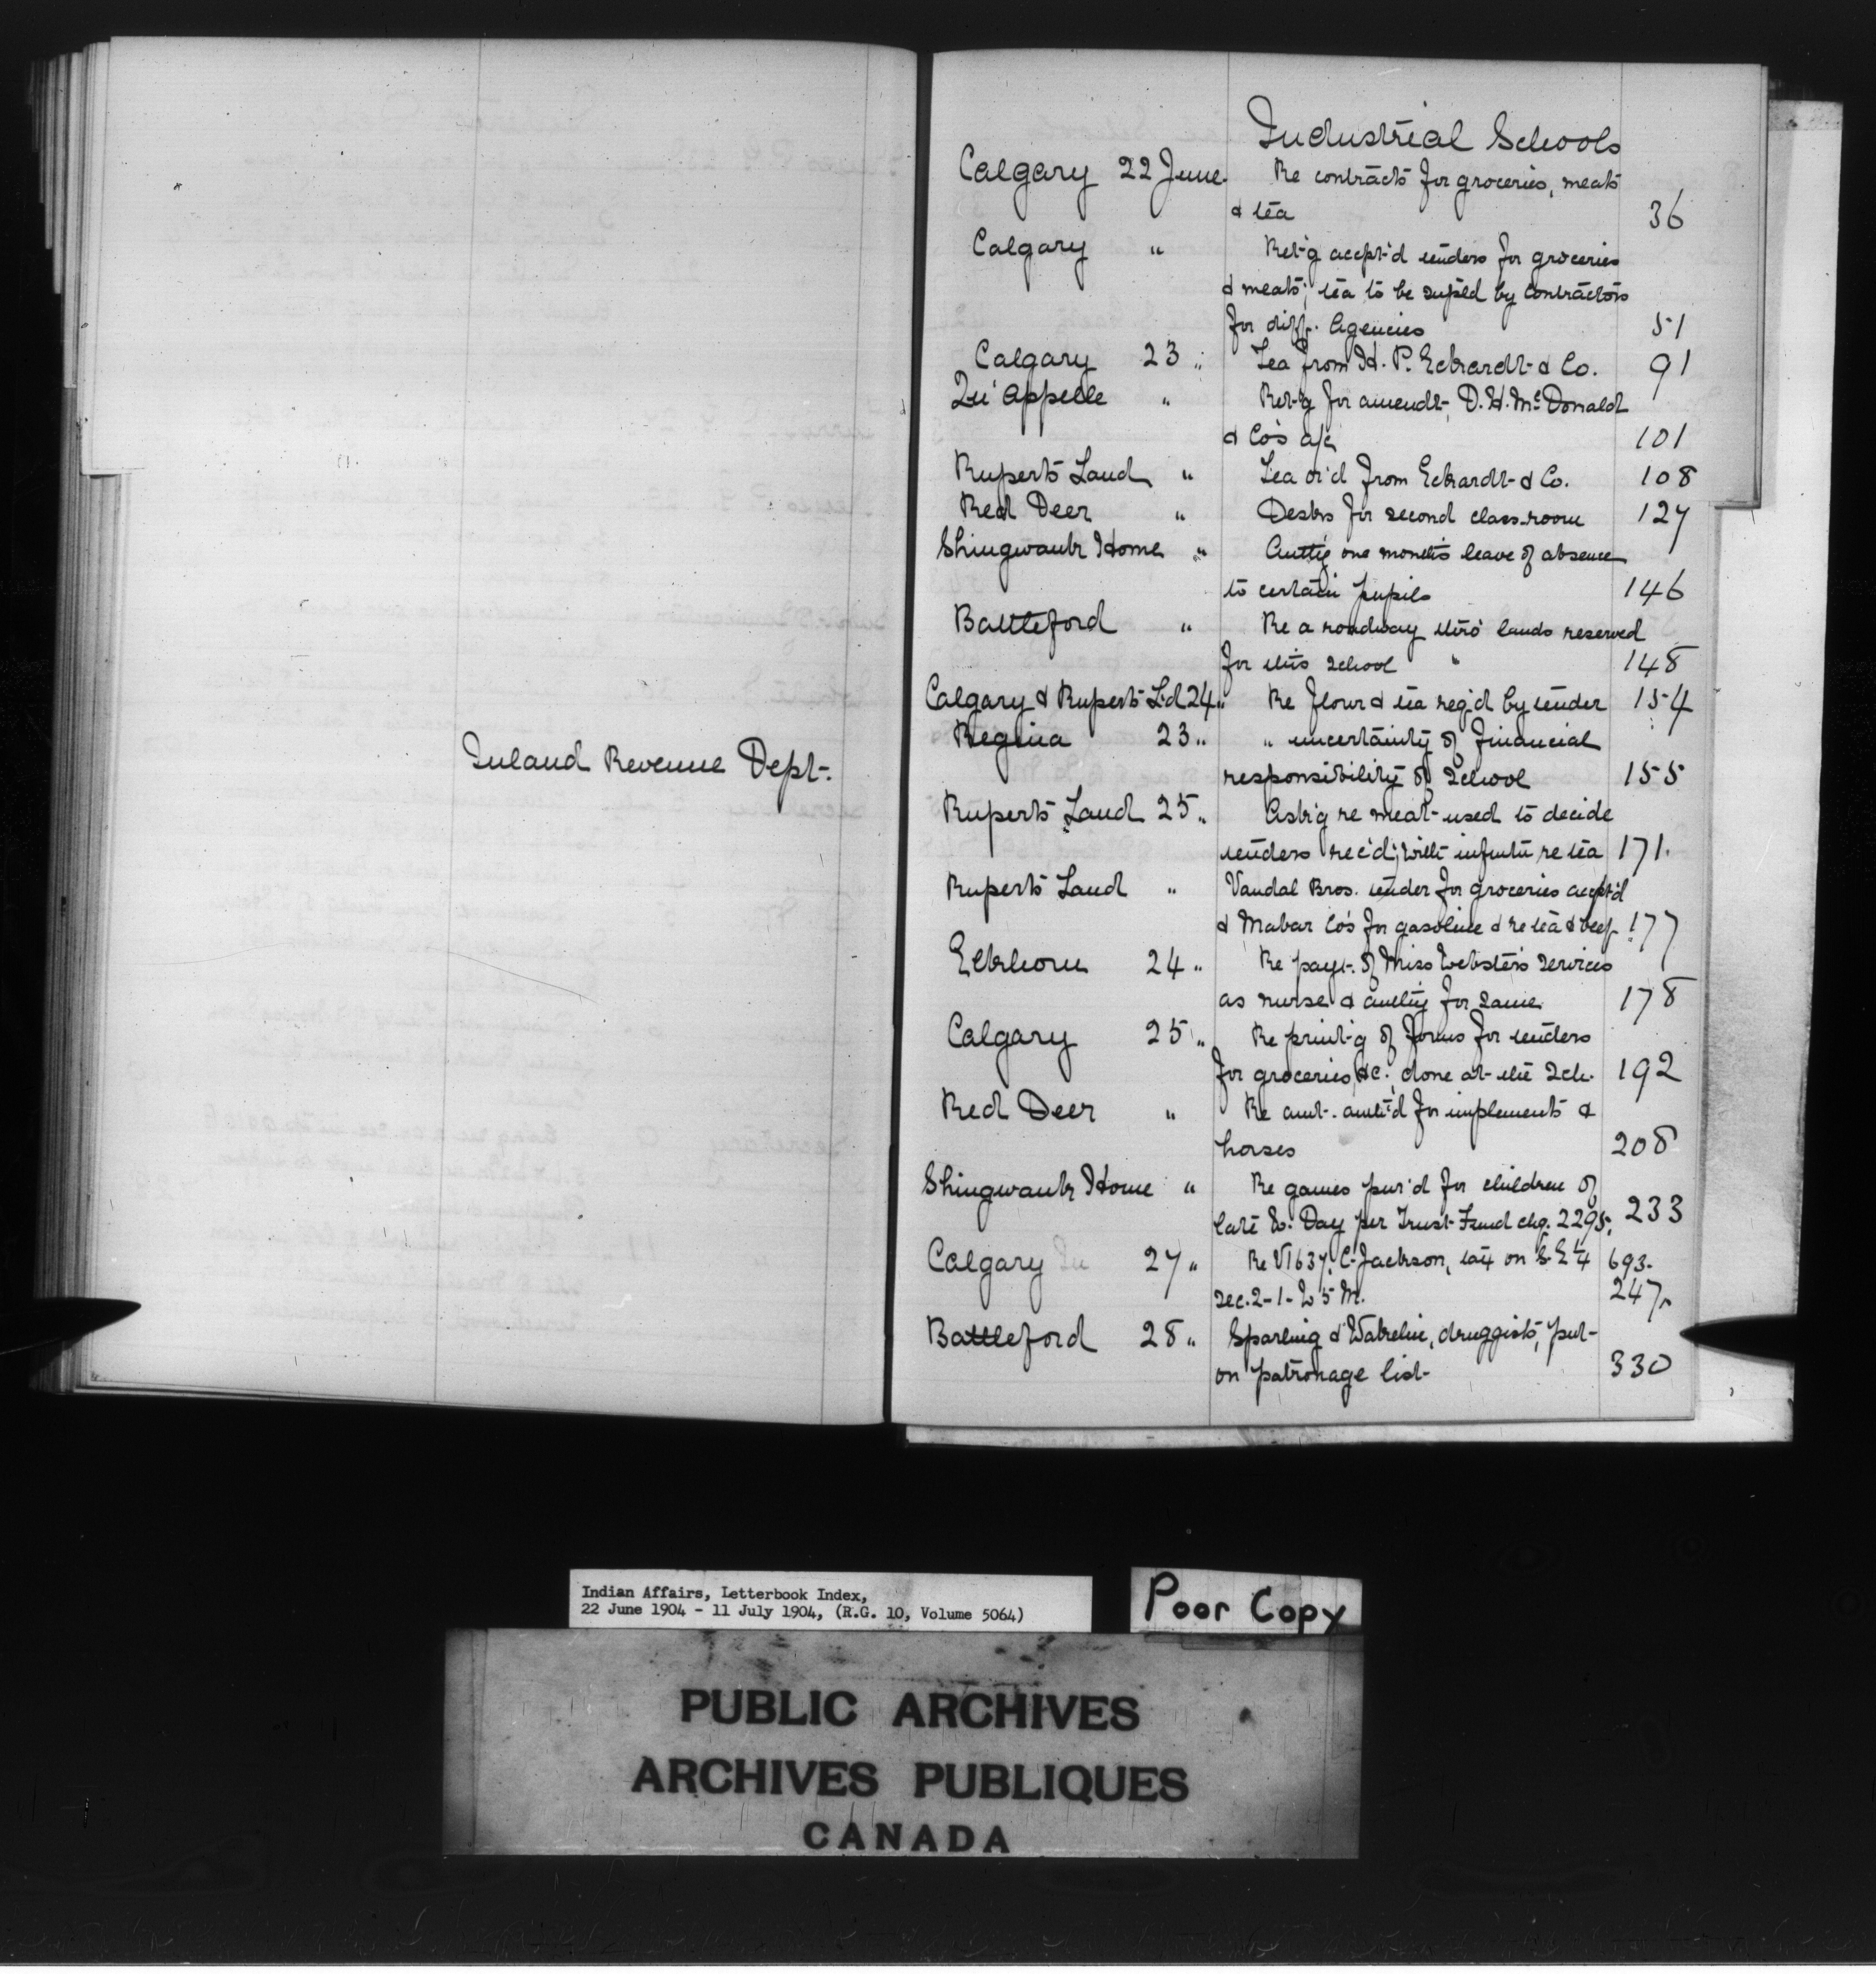 Inland Revenue Dept.
Industrial Schools
Calgary 22 June. Re contracts for groceries, meats
& tea 36
Calgary " Ret'g accpt'd tenders for groceries
& meats; tea to be supl'd by contractors
for diff. Agencies 51
Calgary 23 " Tea from H. P. Eckardt & Co. 91
Qu'Appelle " Ret'g for amendt, D. H. McDonald
& Co's a/c 101
Ruperts Land " Tea or'd from Eckardt & Co. 108
Red Deer " Desks for second class-room 127
Shingwauk Home " Auth'g one month's leave of absence
to certain pupils 146
Battleford " Re a roadway thro' lands reserved
for this school 148
Calgary & Ruperts L'd 24 " Re flour & tea req'd by tender 154
Regina 23 " " uncertainty of financial
responsibility of School 155
Ruperts Land 25 " Ask'g re meat used to decide
tenders rec'd; with re tea 171.
Ruperts Land " Vandal Bros. tender for groceries accpt'd
& Mabar Co's for gasoline & re tea & beef 177
Elkhorn 24 " Re payt. of Miss Webster's services
as nurse & auth'y for same 178
Calgary 25 " Re print'g of forms for tenders
for groceries, &c., done at the Sch. 192
Red Deer " Re amt. auth'd for implements &
horses 208
Shingwauk Home " Re games pur'd for children of
late Day per Trust Fund chq. 2295. 233
Calgary 27 " Re V1637, C. Jackson, on S.E ¼ 693.
Sec. 2-1- W 5 M. 247
Battleford 28 " Sparling & druggists, put
on patronage list 330
Indian Affairs, Letterbook Index,
22 June 1904 - 11 July 1904, (R.G. 10, Volume 5064)
Poor Copy
PUBLIC ARCHIVES
ARCHIVES PUBLIQUES
CANADA